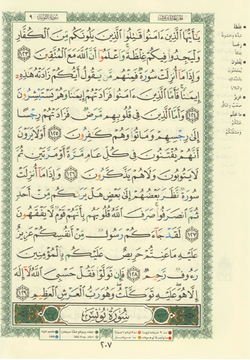 يَٰٓأَيُّهَا ٱلَّذِينَ ءَامَنُوا۟ قَٰتِلُوا۟ ٱلَّذِينَ يَلُونَكُم مِّنَ ٱلْكُفَّارِ
وَلْيَجِدُوا۟ فِيكُمْ غِلْظَةً ۚ وَٱعْلَمُوٓا۟ أَنَّ ٱللَّهَ مَعَ ٱلْمُتَّقِينَ ١٢٣
وَإِذَا مَآ أُنزِلَتْ سُورَةٌ فَمِنْهُم مَّن يَقُولُ أَيُّكُمْ زَادَتْهُ هَٰذِهِۦٓ
إِيمَٰنًا ۚ فَأَمَّا ٱلَّذِينَ ءَامَنُوا۟ فَزَادَتْهُمْ إِيمَٰنًا وَهُمْ يَسْتَبْشِرُونَ ١٢٤
وَأَمَّا ٱلَّذِينَ فِى قُلُوبِهِم مَّرَضٌ فَزَادَتْهُمْ رِجْسًا
إِلَىٰ رِجْسِهِمْ وَمَاتُوا۟ وَهُمْ كَٰفِرُونَ ١٢٥ أَوَلَا يَرَوْنَ
أَنَّهُمْ يُفْتَنُونَ فِى كُلِّ عَامٍ مَّرَّةً أَوْ مَرَّتَيْنِ ثُمَّ
لَا يَتُوبُونَ وَلَا هُمْ يَذَّكَّرُونَ ١٢٦ وَإِذَا مَآ أُنزِلَتْ
سُورَةٌ نَّظَرَ بَعْضُهُمْ إِلَىٰ بَعْضٍ هَلْ يَرَىٰكُم مِّنْ أَحَدٍ
ثُمَّ ٱنصَرَفُوا۟ ۚ صَرَفَ ٱللَّهُ قُلُوبَهُم بِأَنَّهُمْ قَوْمٌ لَّا يَفْقَهُونَ
١٢٧ لَقَدْ جَآءَكُمْ رَسُولٌ مِّنْ أَنفُسِكُمْ عَزِيزٌ
عَلَيْهِ مَا عَنِتُّمْ حَرِيصٌ عَلَيْكُم بِٱلْمُؤْمِنِينَ
رَءُوفٌ رَّحِيمٌ ١٢٨ فَإِن تَوَلَّوْا۟ فَقُلْ حَسْبِىَ ٱللَّهُ لَآ إِلَٰهَ
إِلَّا هُوَ ۖ عَلَيْهِ تَوَكَّلْتُ ۖ وَهُوَ رَبُّ ٱلْعَرْشِ ٱلْعَظِيمِ ١٢٩
سُورَةُ يُونُسَ
٢٠٧